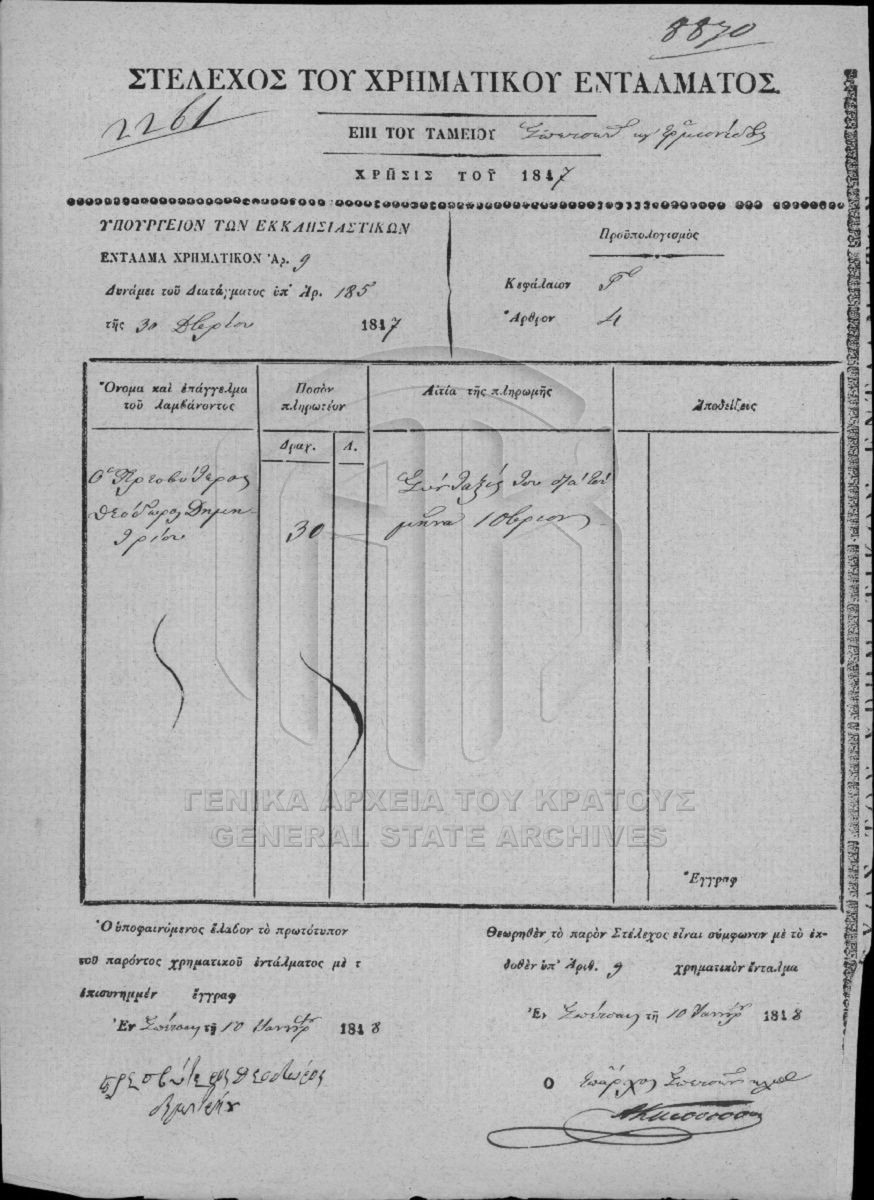 8870
ΣΤΕΛΕΧΟΣ ΤΟΥ ΧΡΗΜΑΤΙΚΟΥ ΕΝΤΑΛΜΑΤΟΣ.
2261
ΕΠΙ ΤΟΥ ΤΑΜΕΙΟΥ Σπετσῶν κ Ἑρμιονίδος
ΧΡΗΣΙΣ ΤΟΥ 1847
ΥΠΟΥΡΓΕΙΟΝ ΤΩΝ ΕΚΚΛΗΣΙΑΣΤΙΚΩΝ
ΕΝΤΑΛΜΑ ΧΡΗΜΑΤΙΚΟΝ Ἀρ. 9
Δυνάμει τοῦ Διατάγματος ὑπ' Ἀρ. 185
τῆς 30 1847
Προϋπολογισμὸς
Κεφάλαιον
Ἄρθρον 4
Ὄνομα καὶ ἐπάγγελμα
τοῦ λαμβάνοντος
Ποσὸν
πληρωτέον
Αἰτία τῆς πληρωμῆς
Ἀποδείξεις
Δραχ. Λ.
Ὁ Πρεσβύτερος
Θεόδωρος Δημη-
τρίου
30
Σύνταξίς του διὰ τὸν
μῆνα
Ἔγγραφ
Ὁ ὑποφαινόμενος ἔλαβον τὸ πρωτότυπον
τοῦ παρόντος χρηματικοῦ ἐντάλματος μὲ τ
ἐπισυνημμέν ἔγγραφ
Ἐν Σπέτσαις τῇ 10 1848
πρεσβύτερος θεοδωρος
Θεωρηθὲν τὸ παρὸν Στέλεχος εἶναι σύμφωνον μὲ τὸ ἐκ-
δοθὲν ὑπ' Ἀριθ. 9 χρηματικὸν ἔνταλμα
Ἐν Σπέτσαις τῇ 10 1848
Ο Ἔπαρχος Σπετσῶν
ΓΕΝΙΚΑ ΑΡΧΕΙΑ ΤΟΥ ΚΡΑΤΟΥΣ
GENERAL STATE ARCHIVES